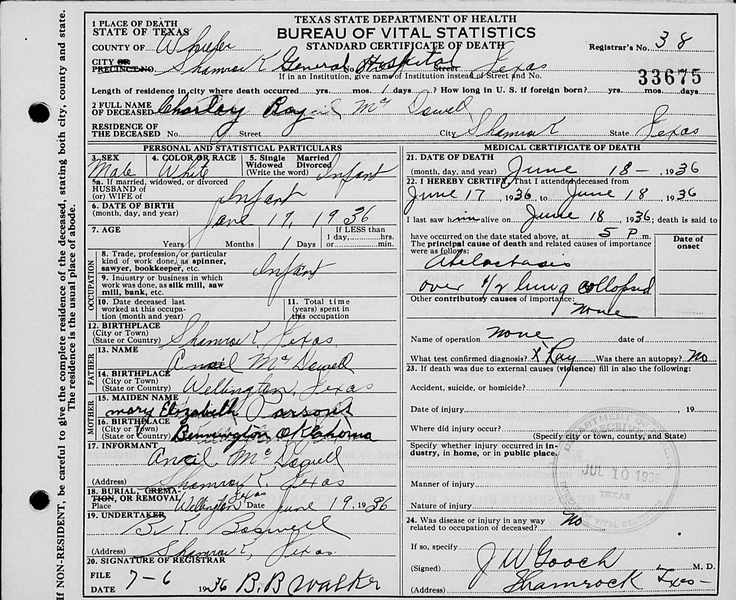 TEXAS STATE DEPARTMENT OF HEALTH
BUREAU OF VITAL STATISTICS
STANDARD CERTIFICATE OF DEATH
Registrar's No. 38
33675
1 PLACE OF DEATH
STATE OF TEXAS
COUNTY OF Wheeler
CITY OR PRECINCT NO. Shamrock General Hospital Street Texas
If in an Institution, give name of Institution instead of Street and No.
Length of residence in city where death occurred yrs. mos. 1 days? How long in U. S. if foreign born? yrs. mos. days
2 FULL NAME OF DECEASED Charley Ray Mc Dowell
RESIDENCE OF THE DECEASED No. Street City Shamrock State Texas
PERSONAL AND STATISTICAL PARTICULARS
3. SEX Male 4. COLOR OR RACE White 5. Single Married Widowed Divorced (Write the word) Infant
5a. If married, widowed, or divorced
HUSBAND OF (or) WIFE OF Infant
6. DATE OF BIRTH (month, day, and year) June 17, 1936
7. AGE Years Months 1 Days If LESS than 1 day, hrs. or min.
OCCUPATION
8. Trade, profession, or particular kind of work done, as spinner, sawyer, bookkeeper, etc. Infant
9. Industry or business in which work was done, as silk mill, saw mill, bank, etc.
10. Date deceased last worked at this occupation (month and year)
11. Total time (years) spent in this occupation
12. BIRTHPLACE (City or Town) (State or Country) Shamrock, Texas
FATHER
13. NAME Ancil Mc Dowell
14. BIRTHPLACE (City or Town) (State or Country) Wellington, Texas
MOTHER
15. MAIDEN NAME Mary Elizabeth Parsons
16. BIRTHPLACE (City or Town) (State or Country) Bennington Oklahoma
17. INFORMANT Ancil Mc Dowell
(Address) Shamrock, Texas
18. BURIAL, CREMATION, OR REMOVAL Wellington Texas Date June 19, 1936
19. UNDERTAKER
(Address) Shamrock, Texas
20. SIGNATURE OF REGISTRAR
FILE DATE 7-6 1936 B.B Walker
MEDICAL CERTIFICATE OF DEATH
21. DATE OF DEATH (month, day, and year) June 18 - , 1936
22. I HEREBY CERTIFY, That I attended deceased from
June 17 1936, to June 18 1936
I last saw him alive on June 18 1936; death is said to
have occurred on the date stated above, at 5 P m.
The principal cause of death and related causes of importance were as follows:
Date of onset
Atelostasis
over 1/2 lung collopsed
Other contributory causes of importance: None
Name of operation None date of
What test confirmed diagnosis? X Ray Was there an autopsy? No
23. If death was due to external causes (violence) fill in also the following:
Accident, suicide, or homicide?
Date of injury 19
Where did injury occur?
(Specify city or town, county, and State)
Specify whether injury occurred in industry, in home, or in public place.
Manner of injury
Nature of injury
24. Was disease or injury in any way related to occupation of deceased? No
If so, specify
(Signed) J W Gooch M. D.
(Address) Shamrock Texas
JUL 10 1936
TEXAS
If NON-RESIDENT, be careful to give the complete residence of the deceased, stating both city, county and state.
The residence is the usual place of abode.